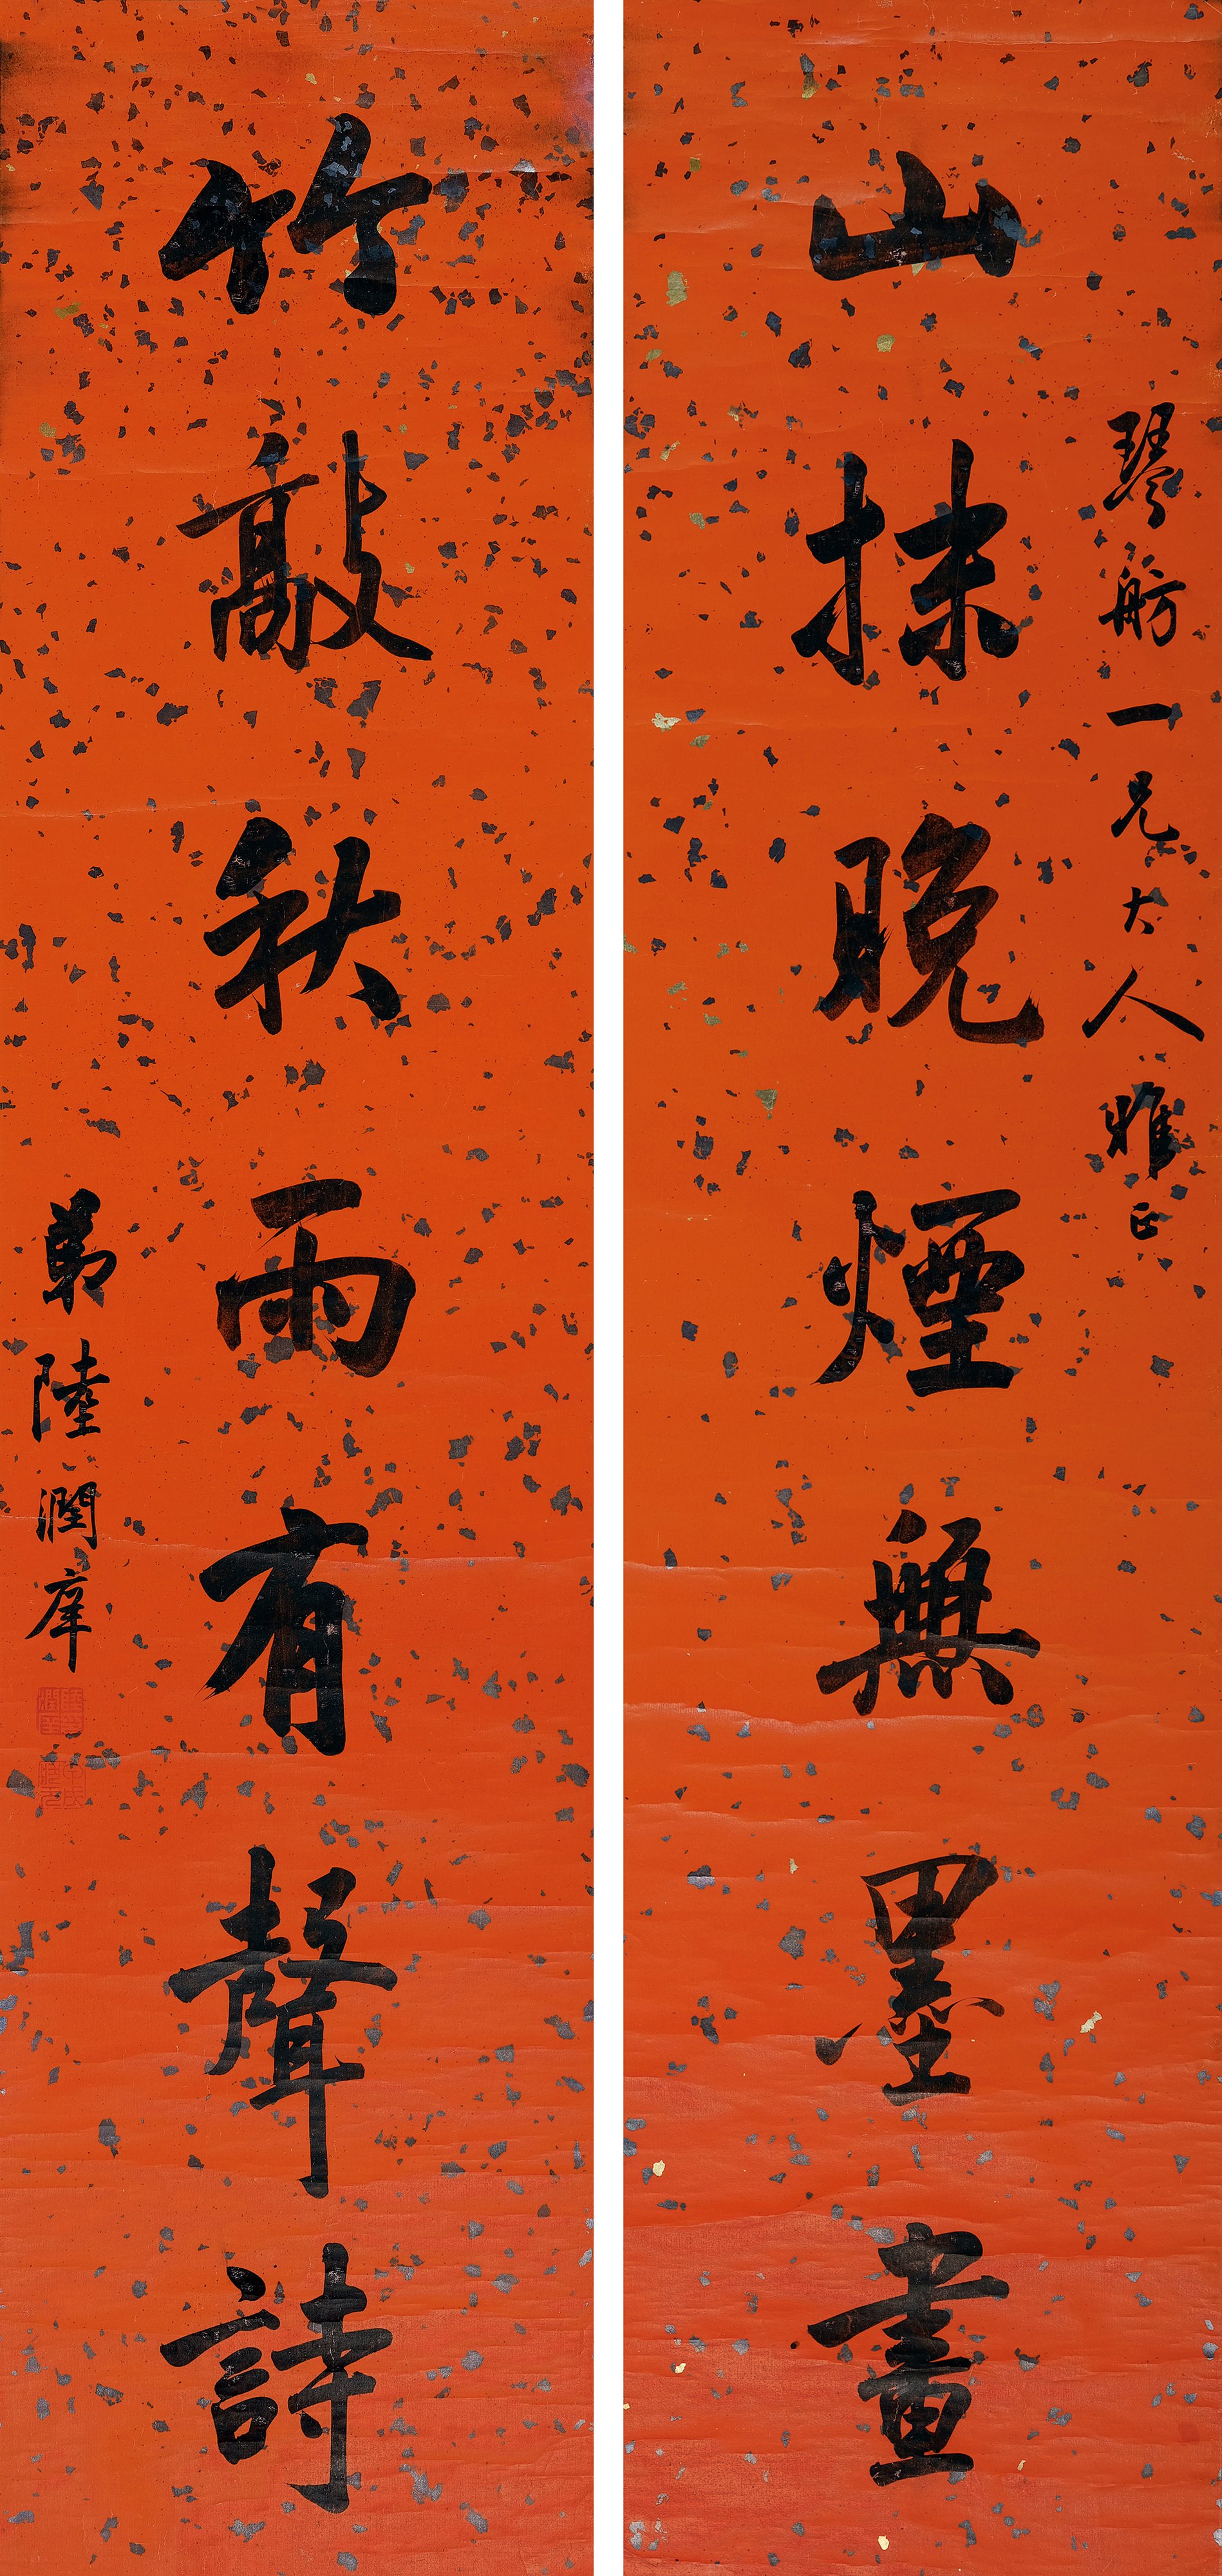 琴舫一兄大人雅正
山抹晚煙無墨畫
竹敲秋雨有聲詩
弟陸潤庠